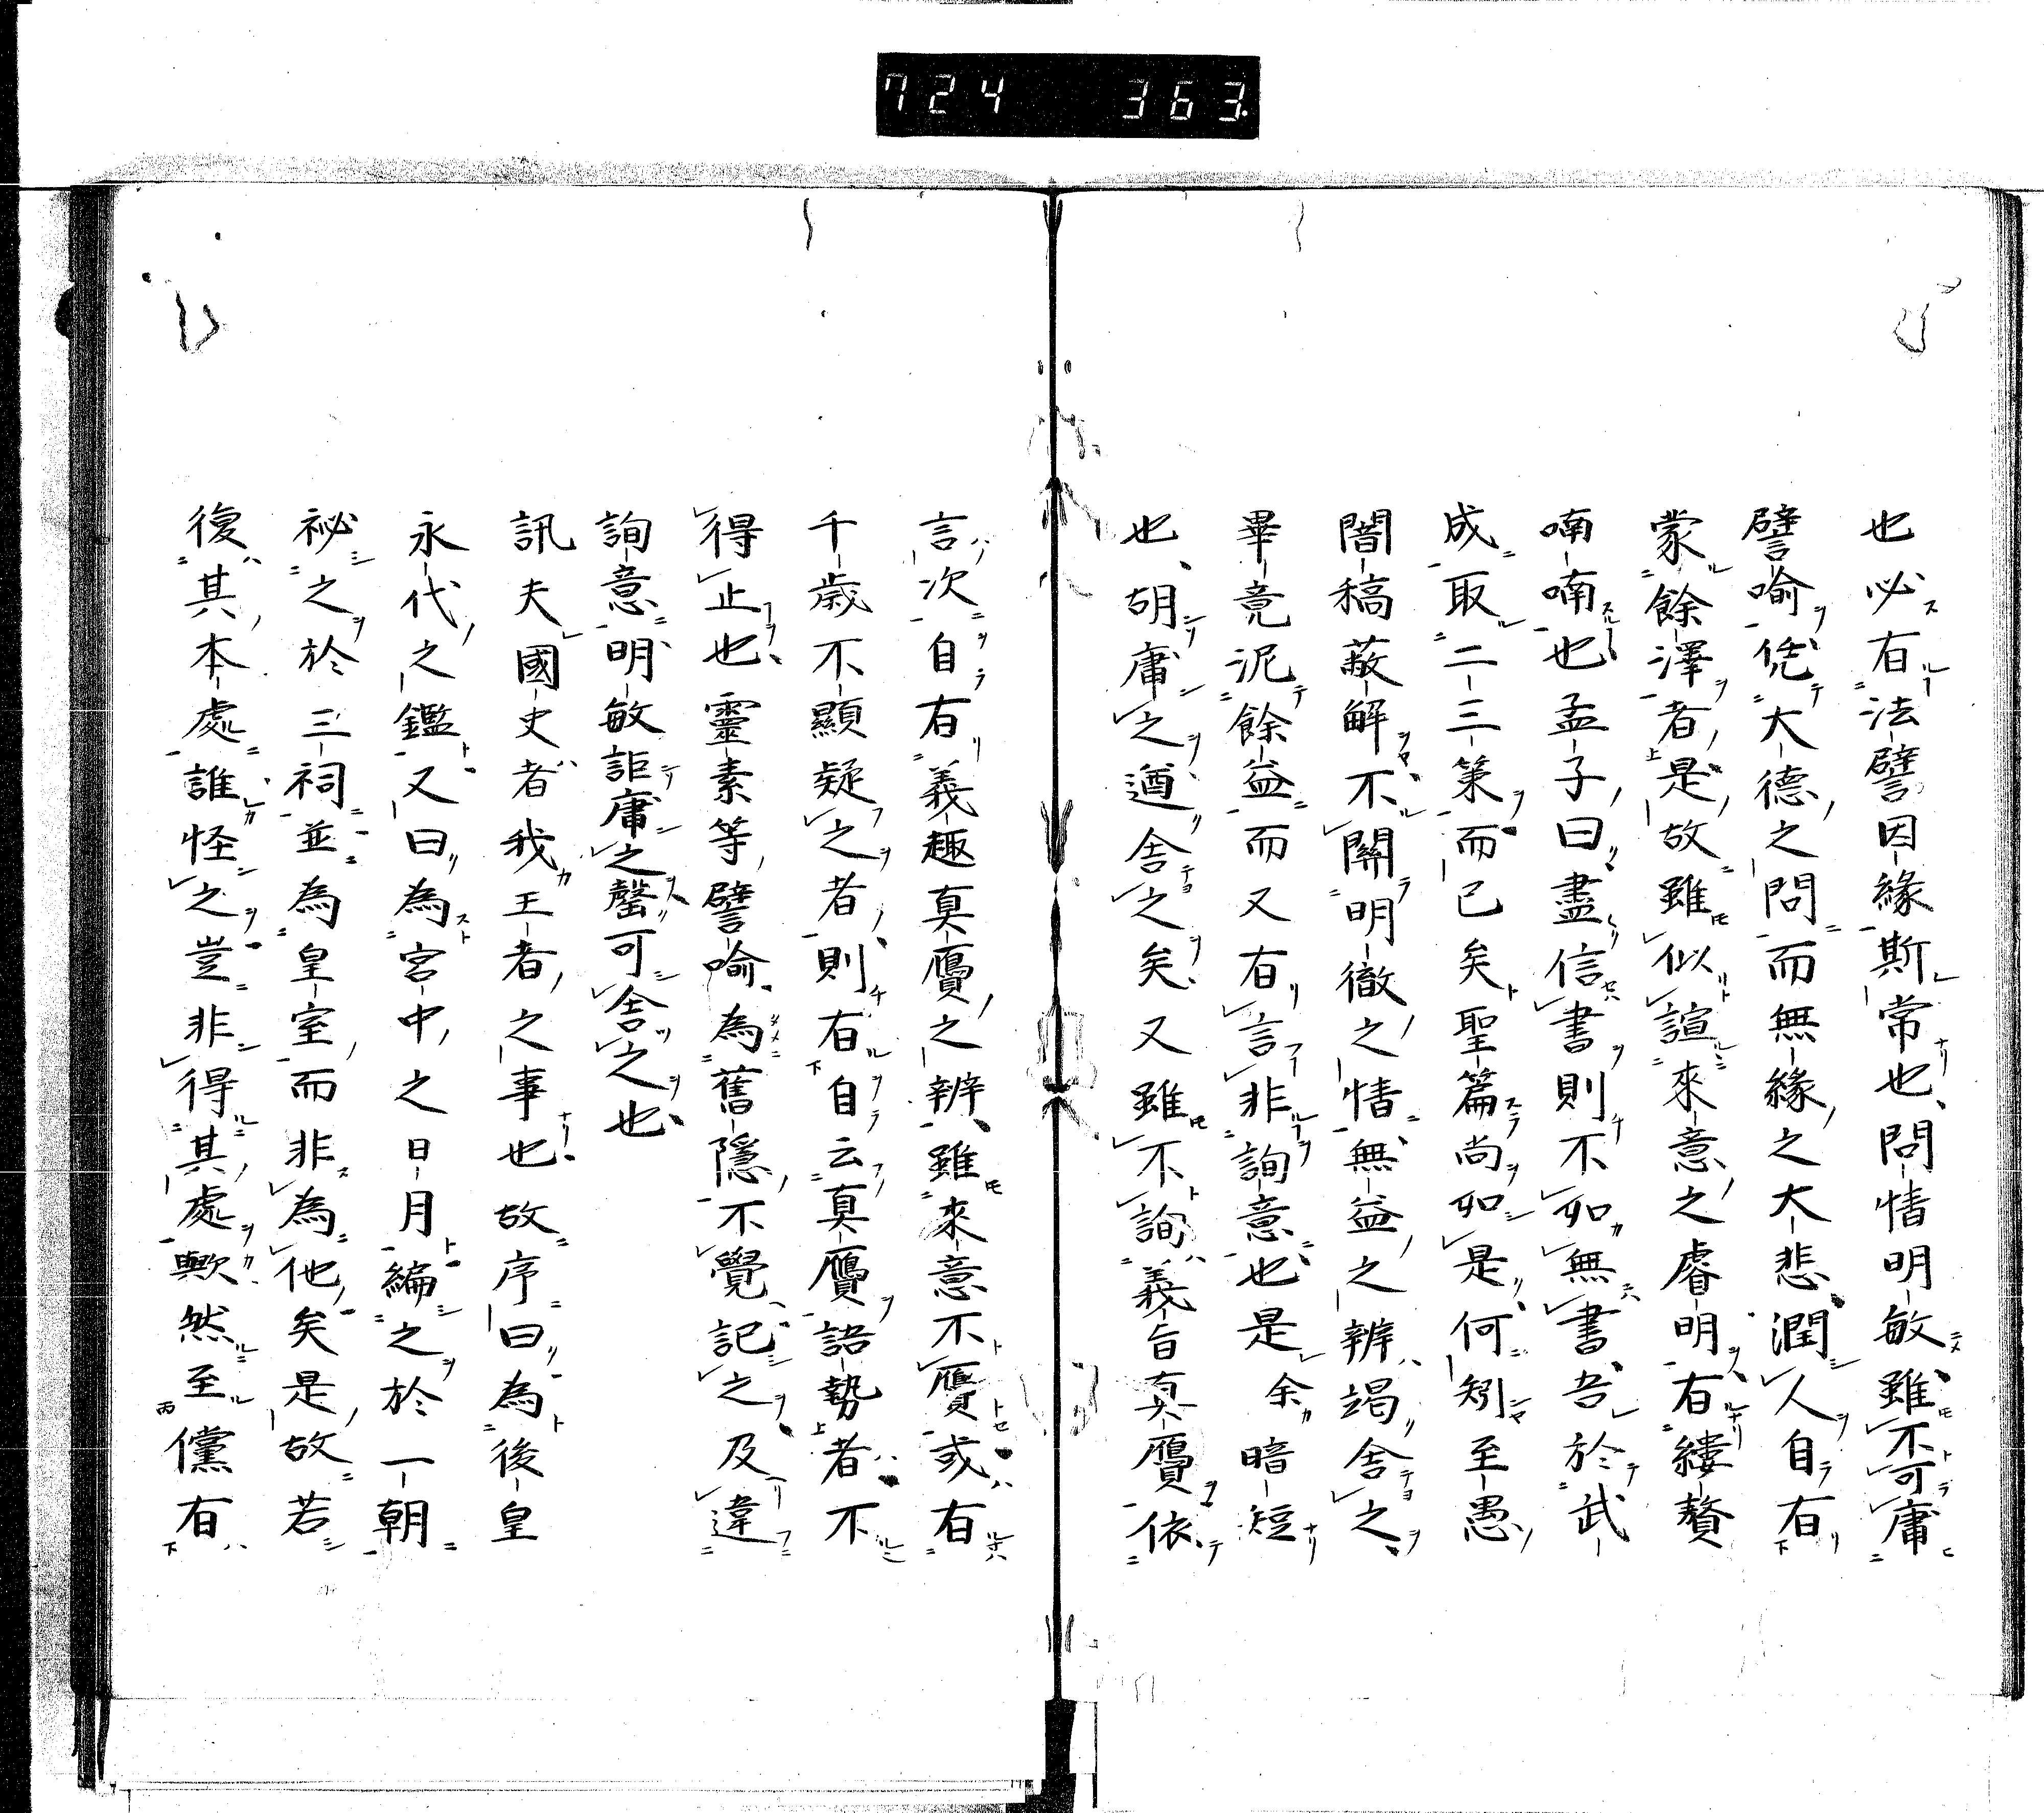 724 363.
也必有法譬因緣斯常也問情明敏雖不可庸
譬喻凭大德之問而無緣之大悲潤人自有
蒙餘澤者是故雖似諠來意之睿明有縷贅
喃喃也孟子曰盡信書則不如無書吾於武
成取二三策而已矣聖篇尚如是何矧至愚
闇稿蔽解不闢明徹之情無益之辨竭舍之
畢竟泥餘益而又有言非詢意也是余暗短
也胡庸之遒舍之矣又雖不詢義旨真贋依
言次自有義趣真贋之辨雖來意不贋或有
千歲不顯疑之者則有自云真贋語勢者不
得止也靈素等譬喻為舊隱不覺記之及違
詢意明敏詎庸之罄可舍之也
訊夫國史者我王者之事也故序曰為後皇
永代之鑑又曰為宮中之日月編之於一朝
祕之於三祠並為皇室而非為他矣是故若
復其本處誰怪之豈非得其處歟然至儻有